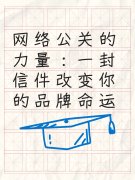 网络公关的
力量：一封
信件改变你
的品牌命运